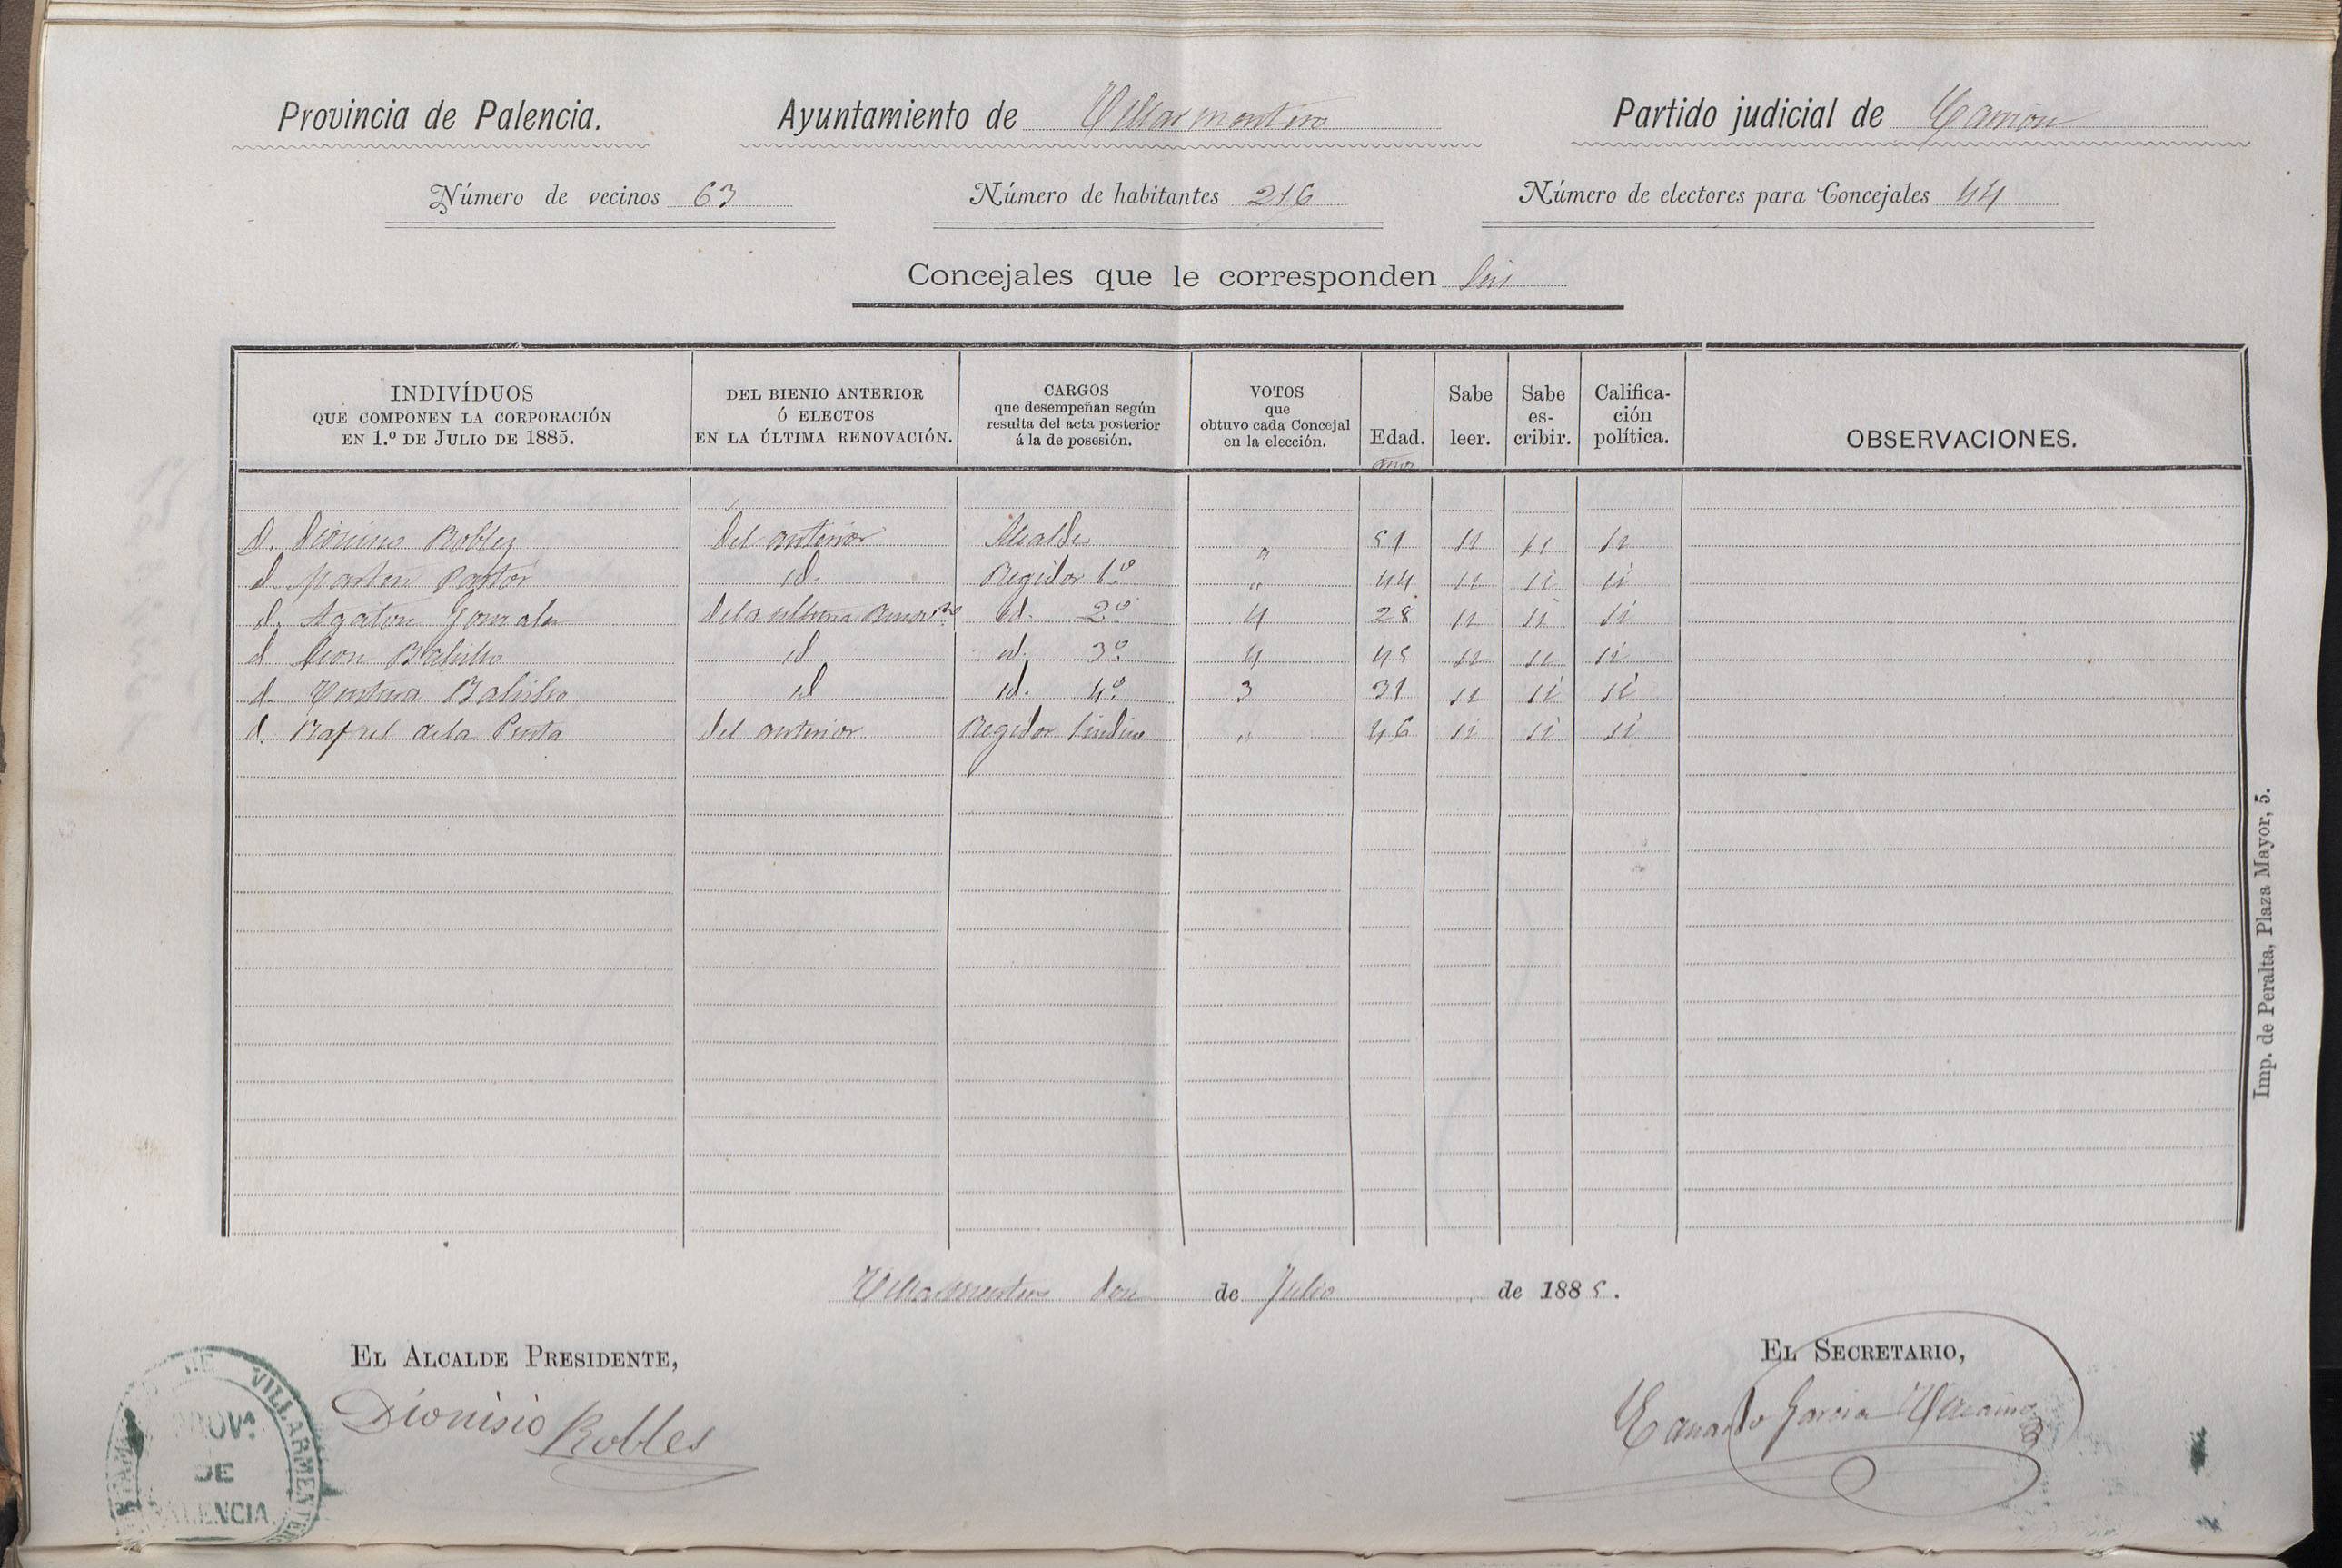 Provincia de Palencia. Ayuntamiento de Villarmentero Partido judicial de Carrion
Número de vecinos 63 Número de habitantes 216 Número de electores para Concejales 44
Concejales que le corresponden Seis
INDIVÍDUOS QUE COMPONEN LA CORPORACIÓN EN 1.º DE JULIO DE 1885. DEL BIENIO ANTERIOR Ó ELECTOS EN LA ÚLTIMA RENOVACIÓN. CARGOS que desempeñan según resulta del acta posterior á la de posesión. VOTOS que obtuvo cada Concejal en la elección. Edad. Sabe leer. Sabe es-cribir. Califica-ción política. OBSERVACIONES.
años
D. Dionisio Robles Del anterior Alcalde " 51 si si si
d. Martin Pastor id. Regidor 1º " 44 si si si
d. Agaton Gonzalez De la ultima id. 2º 4 28 si si si
d Leon id id. 3º 4 45 si si si
d. Ventura id id. 4º 3 31 si si si
d. Rafael de la Del anterior Regidor Sindico " 46 si si si
Villarmentero dos de Julio de 1885.
EL ALCALDE PRESIDENTE, EL SECRETARIO,
Dionisio Robles Garcia
DE VILLARMENTERO
PROVª
DE
PALENCIA.
Imp. de Peralta, Plaza Mayor, 5.